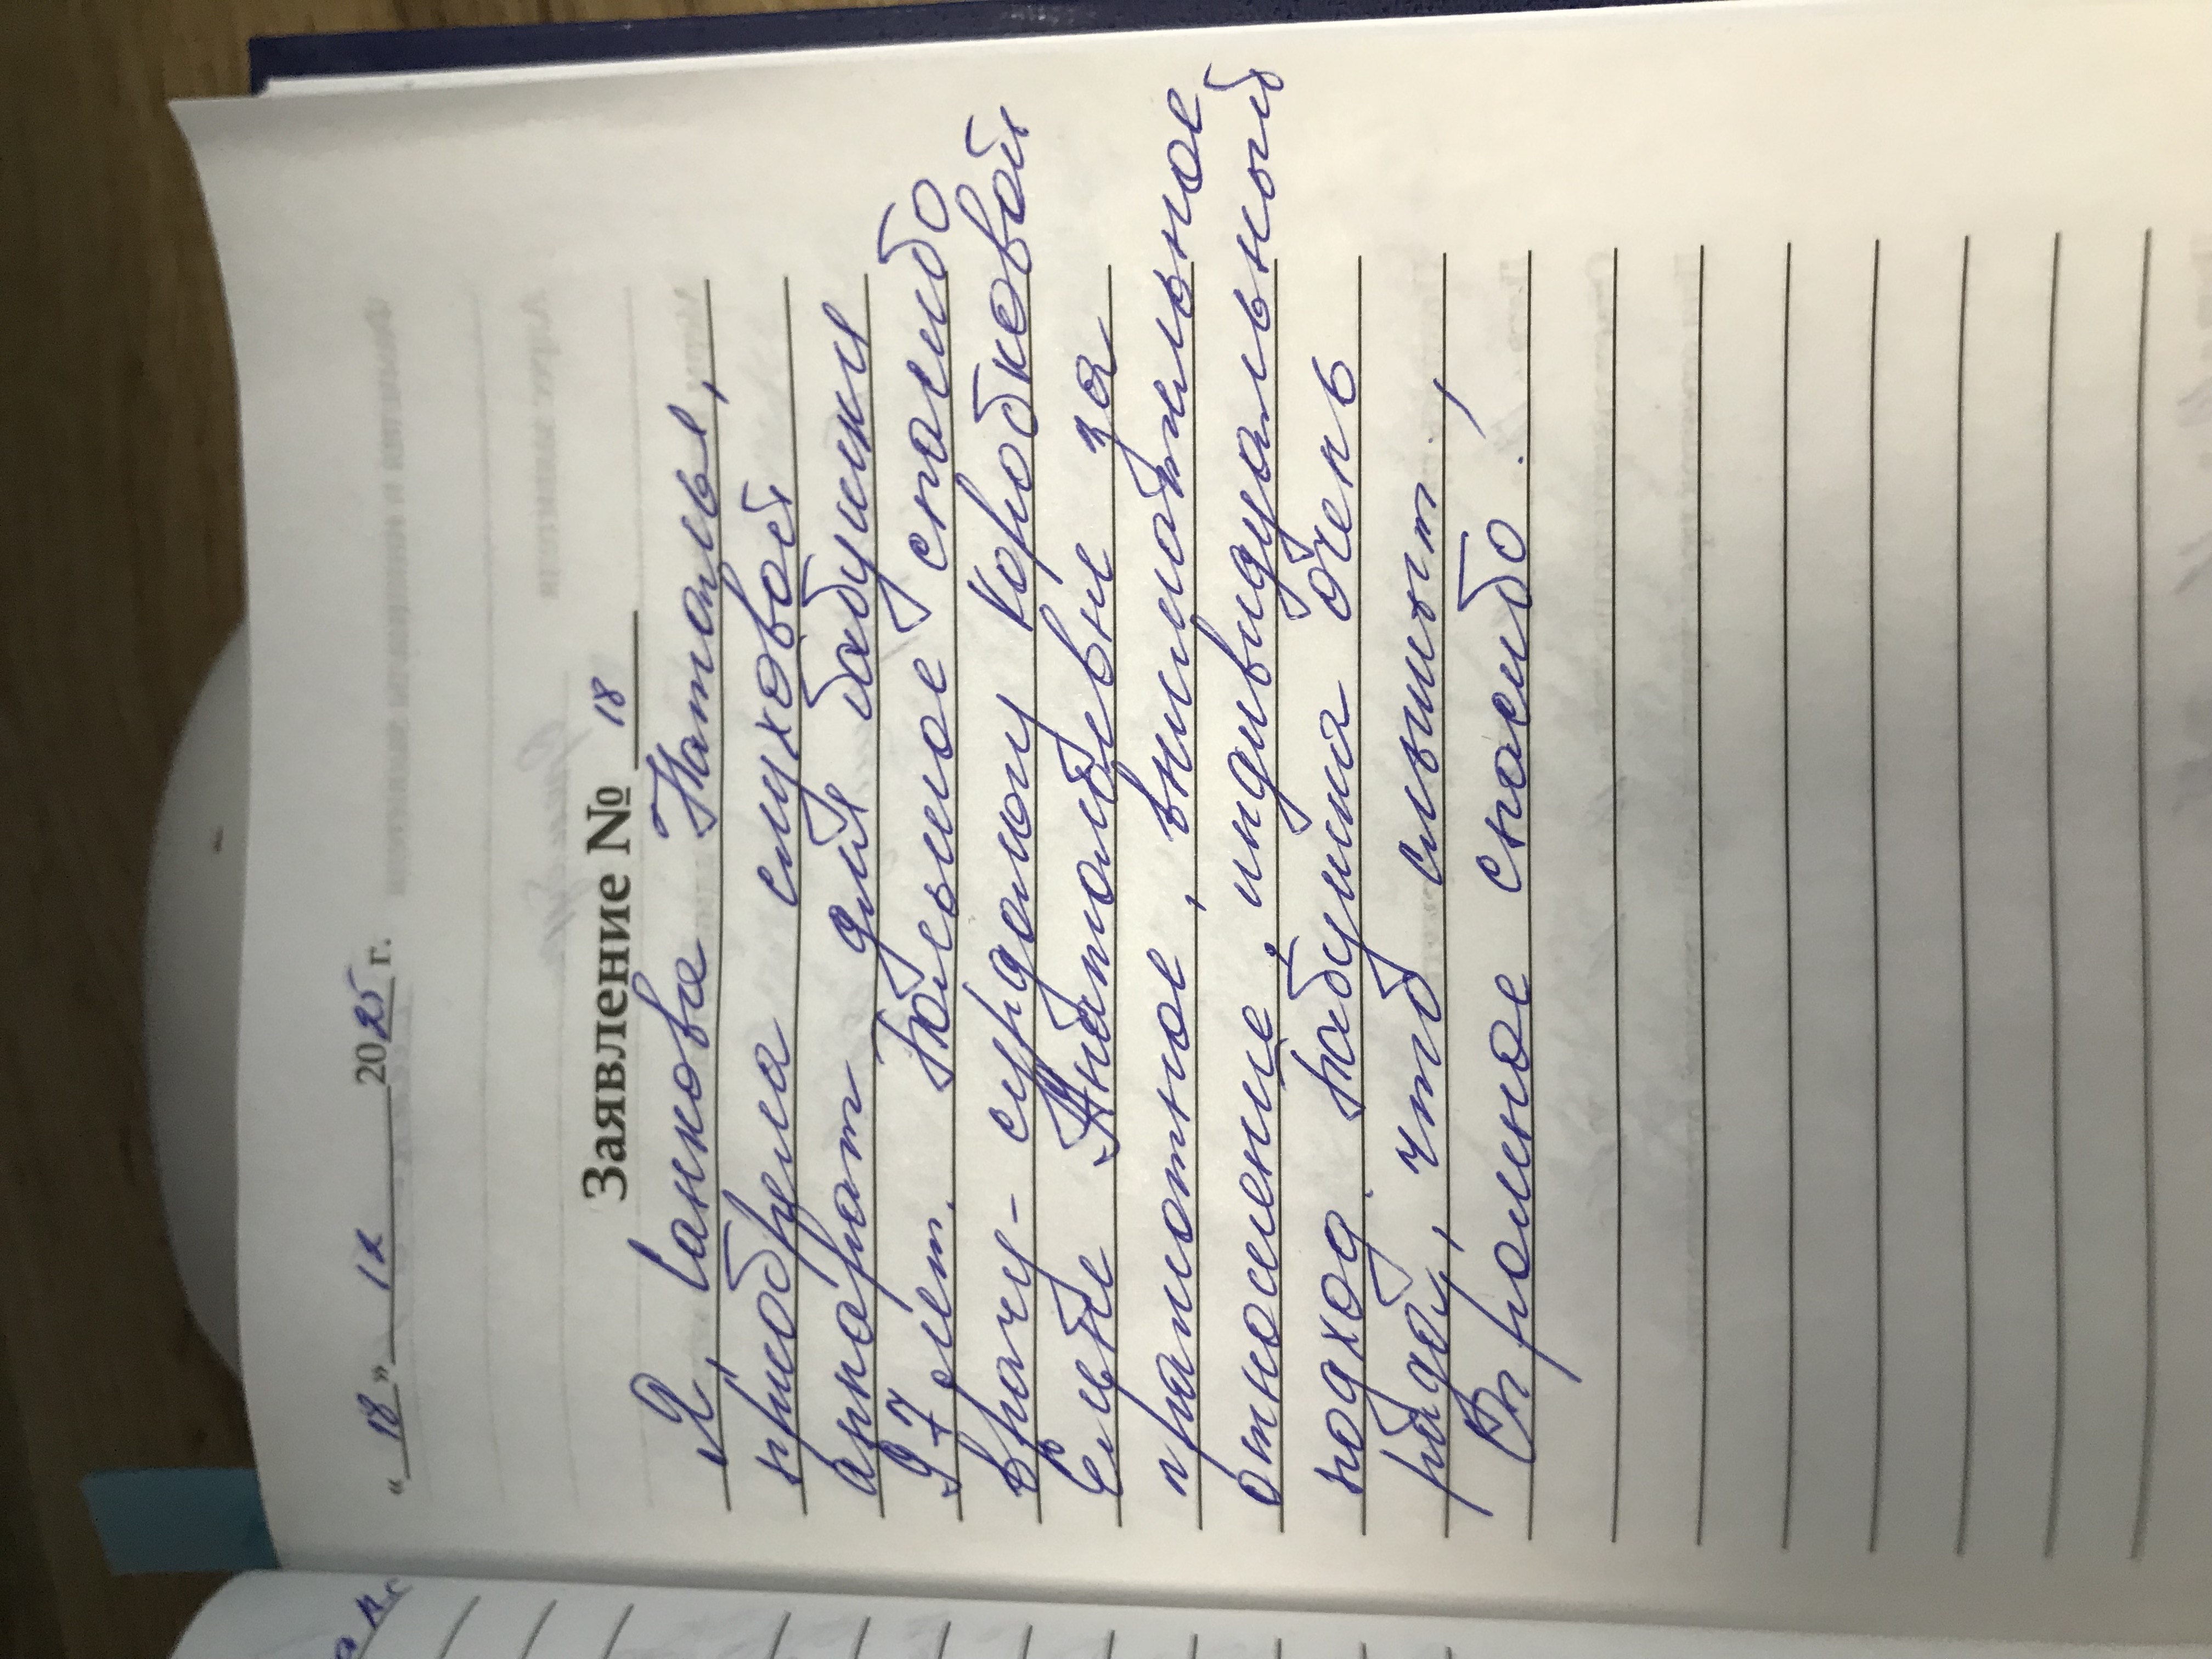 « 18 » IX 2025 г.
Заявление № 18
Я, Панкова Наталья,
приобрела слуховой
аппарат для бабушки
97 лет. Большое спасибо
врачу-сурдологу Коробковой
Елене Анатольевне за
грамотное, внимательное
отношение, индивидуальный
подход. Бабушка очень
рада, что слышит.
Огромное спасибо!